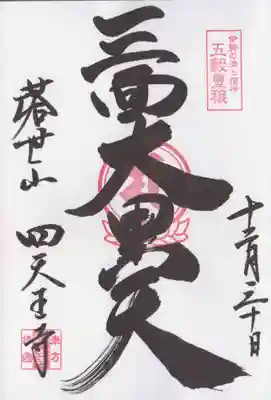 五穀豊穣
十二月三十日
三面大黒天
塔世山 四天王寺